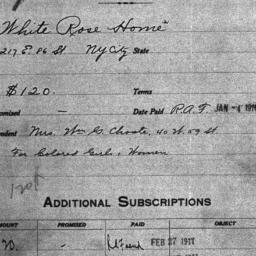 "White Rose Home"
217 E 86 St NYCity State
$120. Terms
omised — Date Paid P.A.F. JAN - 4 191
ndent Mrs. Wm G. Choate, 40 W. 59 St.
For Colored Girls & Women
ADDITIONAL SUBSCRIPTIONS
MOUNT PROMISED PAID OBJECT
20. — FEB 27 1911